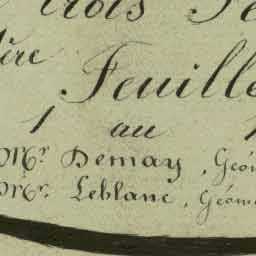 trois Fe
ière
Feuille
1 au 1
Mr. Demay, Géom
Mr. Leblanc, Géom